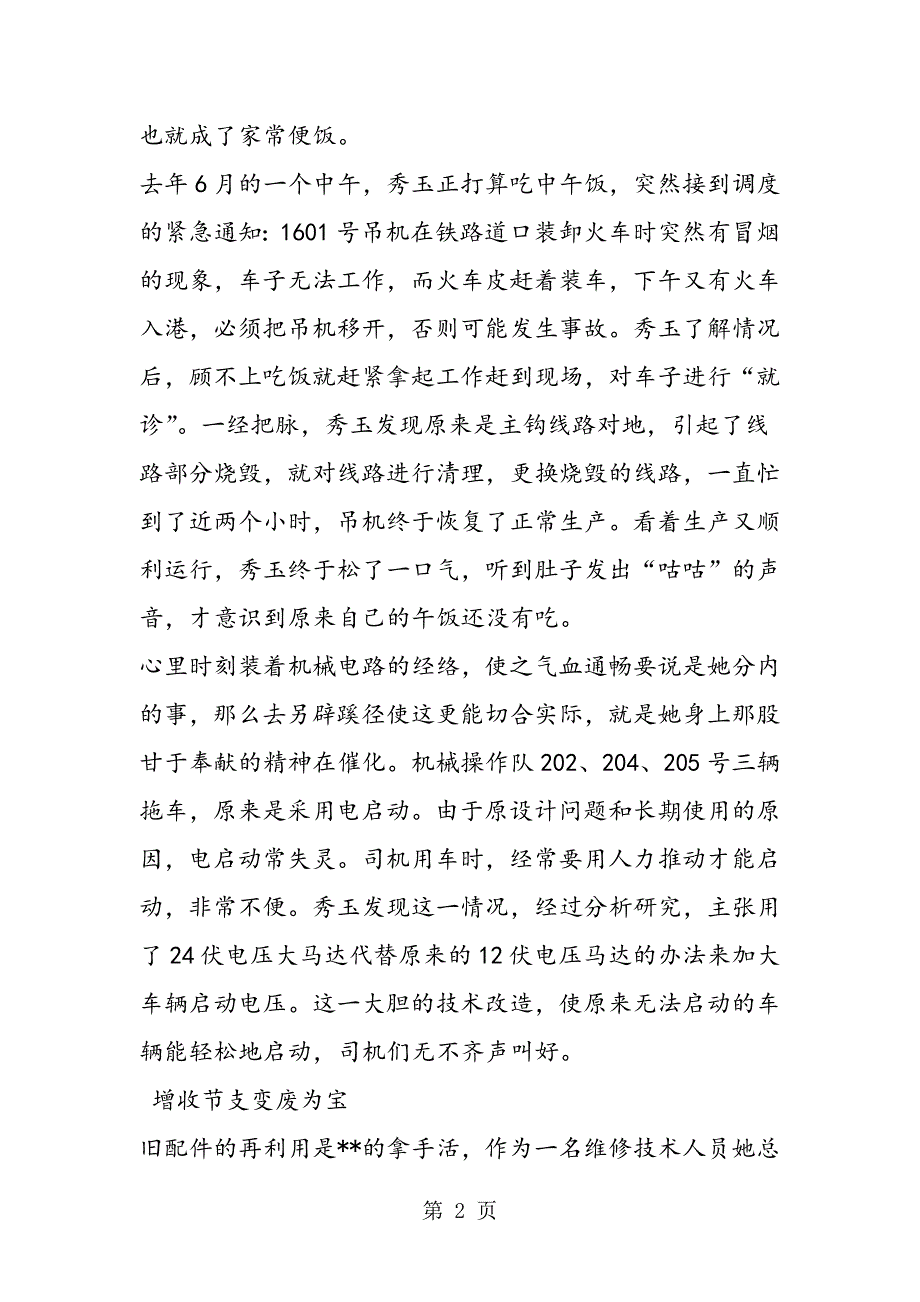 也就成了家常便饭。
去年6月的一个中午，秀玉正打算吃中午饭，突然接到调度
的紧急通知：1601号吊机在铁路道口装卸火车时突然有冒烟
的现象，车子无法工作，而火车皮赶着装车，下午又有火车
入港，必须把吊机移开，否则可能发生事故。秀玉了解情况
后，顾不上吃饭就赶紧拿起工作赶到现场，对车子进行“就
诊”。一经把脉，秀玉发现原来是主钩线路对地，引起了线
路部分烧毁，就对线路进行清理，更换烧毁的线路，一直忙
到了近两个小时，吊机终于恢复了正常生产。看着生产又顺
利运行，秀玉终于松了一口气，听到肚子发出“咕咕”的声
音，才意识到原来自己的午饭还没有吃。
心里时刻装着机械电路的经络，使之气血通畅要说是她分内
的事，那么去另辟蹊径使这更能切合实际，就是她身上那股
甘于奉献的精神在催化。机械操作队202、204、205号三辆
拖车，原来是采用电启动。由于原设计问题和长期使用的原
因，电启动常失灵。司机用车时，经常要用人力推动才能启
动，非常不便。秀玉发现这一情况，经过分析研究，主张用
了24伏电压大马达代替原来的12伏电压马达的办法来加大
车辆启动电压。这一大胆的技术改造，使原来无法启动的车
辆能轻松地启动，司机们无不齐声叫好。
增收节支变废为宝
旧配件的再利用是**的拿手活，作为一名维修技术人员她总
第 2 页